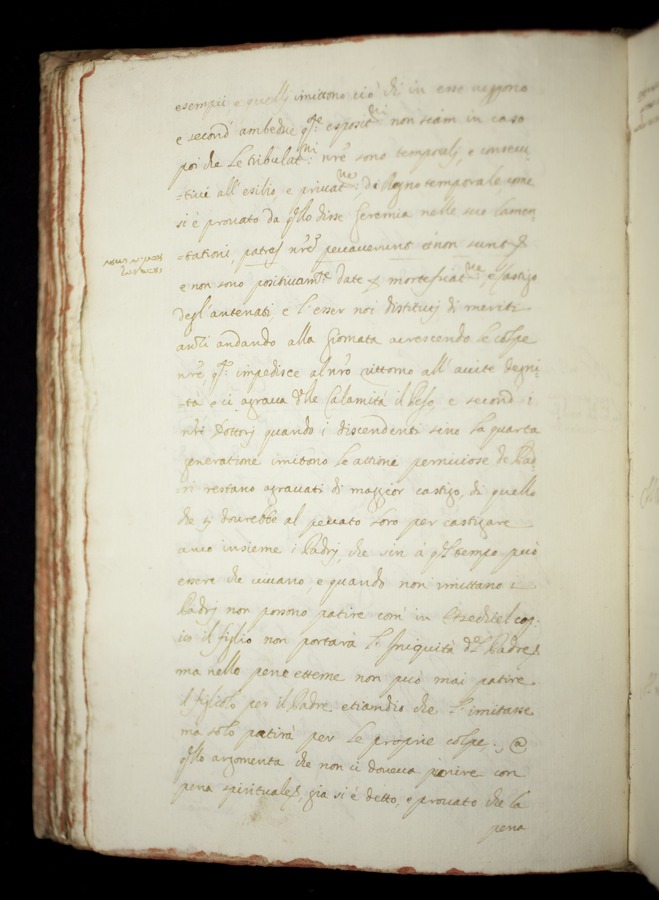 esempii, e quelli imittono ciò di in esso veggono
e second' ambedue q.te esposit.ni non siam in caso
poi che le tribulat.ni nr̃e sono temporali, e consecu
=tivi all'esilio, e privat.ne di Regno temporale, come
si è provato da q̃llo disse Geremia nelle sue lamen
=tationi, patres nr̃i peccaverunt et non sunt
e non sono positivam.te date p mortificat.ne, e castigo
degl'antenati e l'esser noi distituij di meriti
anzi andando alla Giornata accrescendo le colpe
nr̃e, impedisce al nr̃o rittorno all'avite degni
=tà e ci agrava d'lle Calamità il Peso, e second i
nr̃i Dottorj quando i discendenti sino la quarta
generatione imitono le attione perniciose de Pad
=ri restano agravati di maggior castigo, di quello
che si dourebbe al peccato loro per castigare
anco insieme i Padrj, che sin à q.l tempo può
essere che vivano, e quando non imittano i
Padrj non possono patire com' in Ezechiel cap.
il figlio non portarà l'Iniquità d.l Padre,
ma nelle pene etterne non può mai patire
il figliolo per il Padre etiandio che l'imitasse
ma solo patirà per le proprie colpe.
q̃llo argomenta che non ci doveva punire con
pena spirituale, già si è detto, e provato che la
pena